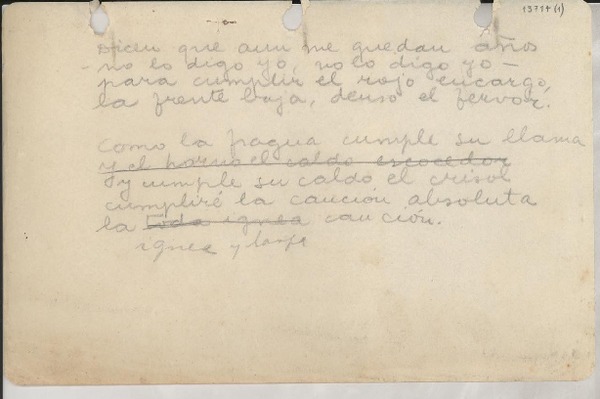 13714(1)
Dicen que aun me quedan años
- no lo digo yo, no lo digo yo -
para cumplir el rojo encargo,
la frente baja, denso el fervor.
Como la fragua cumple su llama
y el horno el caldo escocedor
y cumple su caldo el crisol
cumpliré la caución absoluta
la toda ignea caución.
ignea y